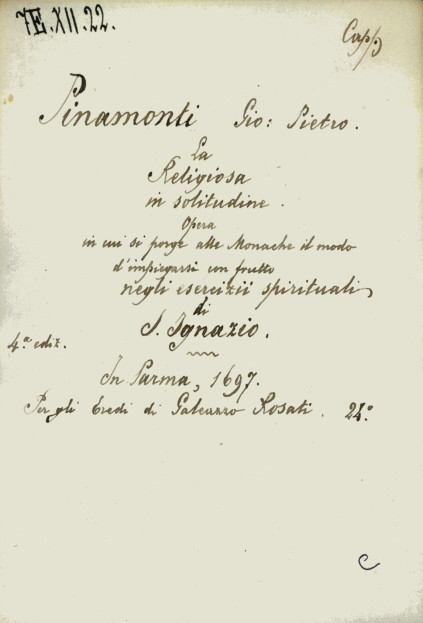 7E.XII.22.
Capp
Pinamonti Gio: Pietro.
La
Religiosa
in solitudine.
Opera
in cui si porge alle Monache il modo
d'impiegarsi con frutto
negli esercizii spirituali
di
S. Ignazio.
4.a ediz.
In Parma, 1697.
Per gli Eredi di Galeazzo Rosati. 24°
C